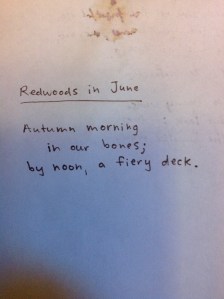 Redwoods in June
Autumn morning
in our bones;
by noon, a fiery deck.